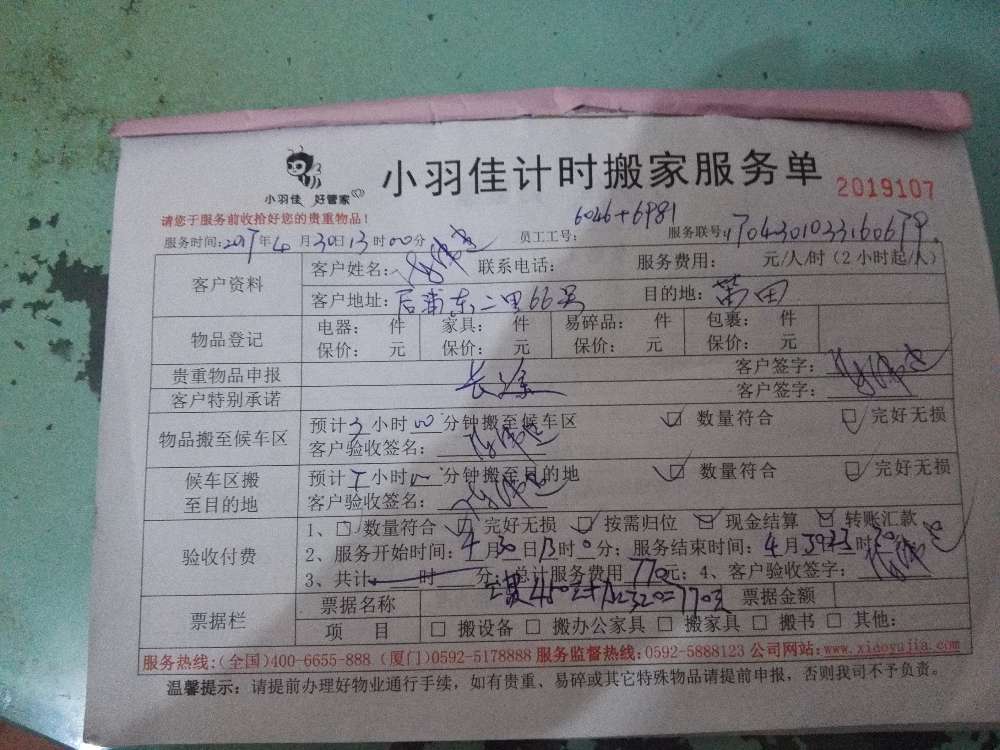 小羽佳 好管家
小羽佳计时搬家服务单
2019107
请您于服务前收拾好您的贵重物品！
6046+6981
服务时间：2017年4月30日13时00分 员工工号： 服务联号：
客户资料 客户姓名： 联系电话： 服务费用： 元/人/时（2小时起/人）
客户地址：后莆东二里66号 目的地：莆田
物品登记 电器： 件 家具： 件 易碎品： 件 包裹： 件
保价： 元 保价： 元 保价： 元 保价： 元
贵重物品申报 客户签字：
客户特别承诺 客户签字：
物品搬至候车区 预计 小时00分钟搬至候车区 数量符合 完好无损
客户验收签名：
候车区搬至目的地 预计 小时 分钟搬至目的地 数量符合 完好无损
客户验收签名：
验收付费 1、 数量符合 完好无损 按需归位 现金结算 转账汇款
2、服务开始时间：4月30日13时0分；服务结束时间：4月 时
3、共计 时 分；总计服务费用 770元；4、客户验收签字：
票据栏 票据名称 450 320=770元 票据金额
项 目 □ 搬设备 □ 搬办公家具 □ 搬家具 □ 搬书 □ 其他:
服务热线:(全国)400-6655-888 (厦门)0592-5178888 服务监督热线:0592-5888123 公司网站:www.xiaoyujia.com
温馨提示：请提前办理好物业通行手续，如有贵重、易碎或其它特殊物品请提前申报，否则我司不予负责。